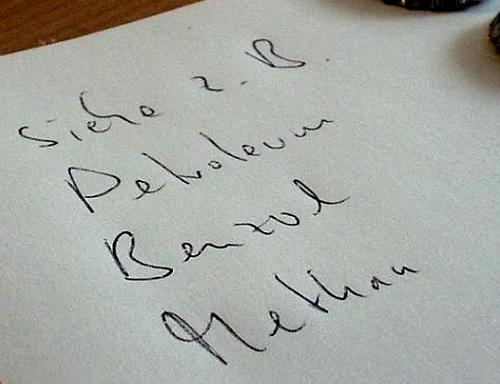 Siehe z. B.
Petroleum
Benzol
Methan